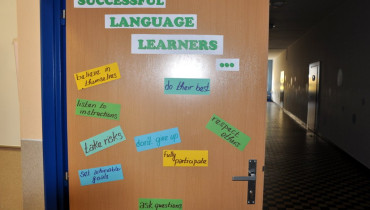 SUCCESSFUL
LANGUAGE
LEARNERS
...
believe in
themselves
do their best
listen to
instructions
respect
others
take risks
don't give up
fully
participate
set achievable
goals
ask questions